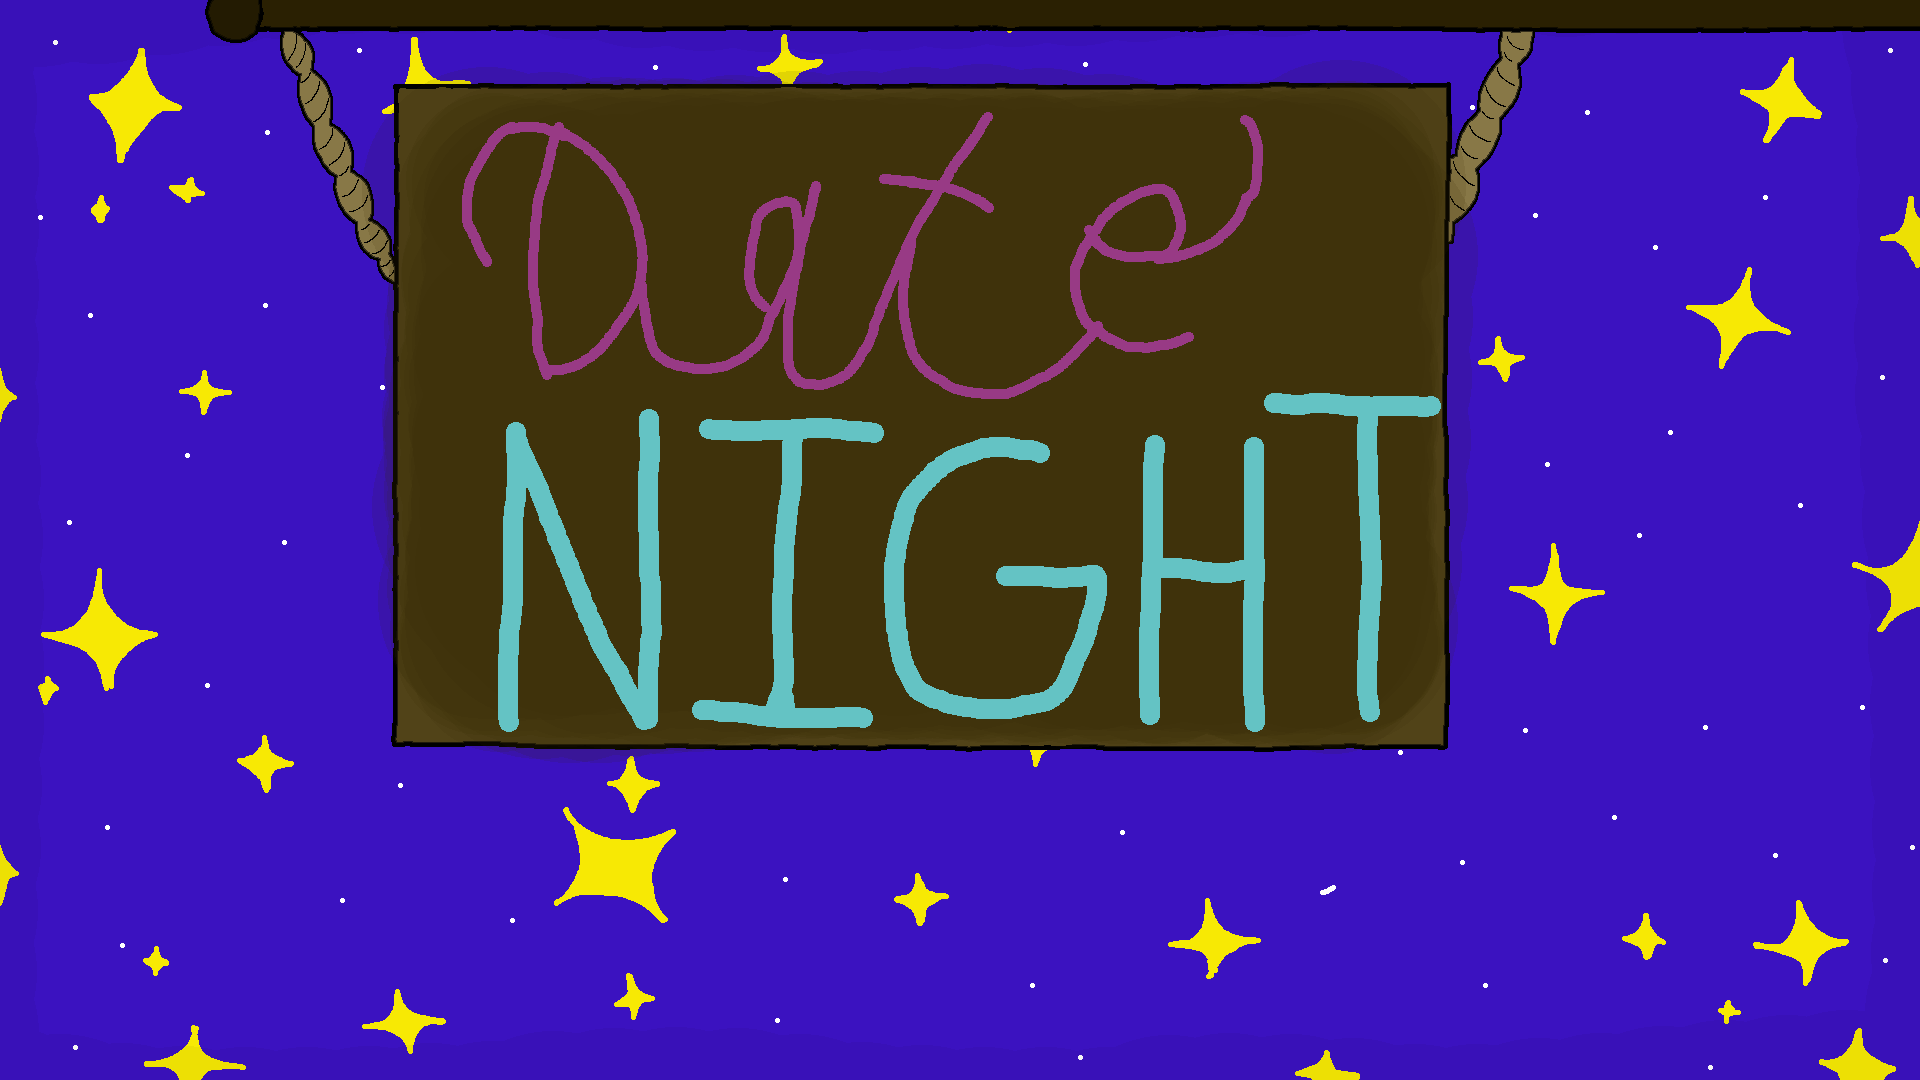 Date
NIGHT